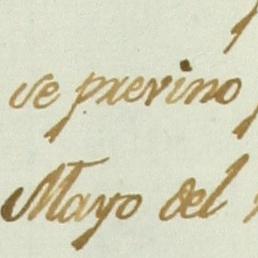 se previno
Mayo del